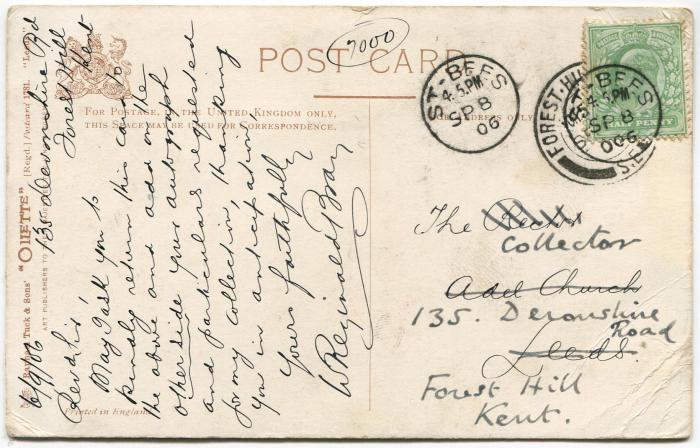 7000
POST CARD
FOR POSTAGE IN THE UNITED KINGDOM ONLY,
THIS SPACE MAY BE USED FOR CORRESPONDENCE.
ADDRESS ONLY
ST-BEES
4.5.PM
SP 8
06
ST-BEES
4.5.PM
SP 8
06
FOREST-HILL
S.E.
RAPHAEL Tuck & Sons' "OILETTE" [Regd.] Postcard
ART PUBLISHERS TO
Printed in England
135 Devonshire Rd
Forest Hill
Kent
6/9/06
Rev'd Sir
May I ask you to
kindly return this card to
the above and add on the
other side your autograph
and particulars requested
for my collection, thanking
you in anticipation
Yours faithfully
W Reginald Bray
The Rector
Collector
Adel Church
135. Devonshire
Road
Leeds.
Forest Hill
Kent.